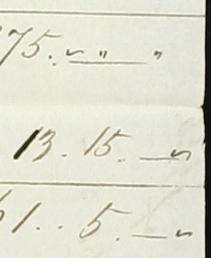 75. " " "
13. 15. —
61.. 5. —